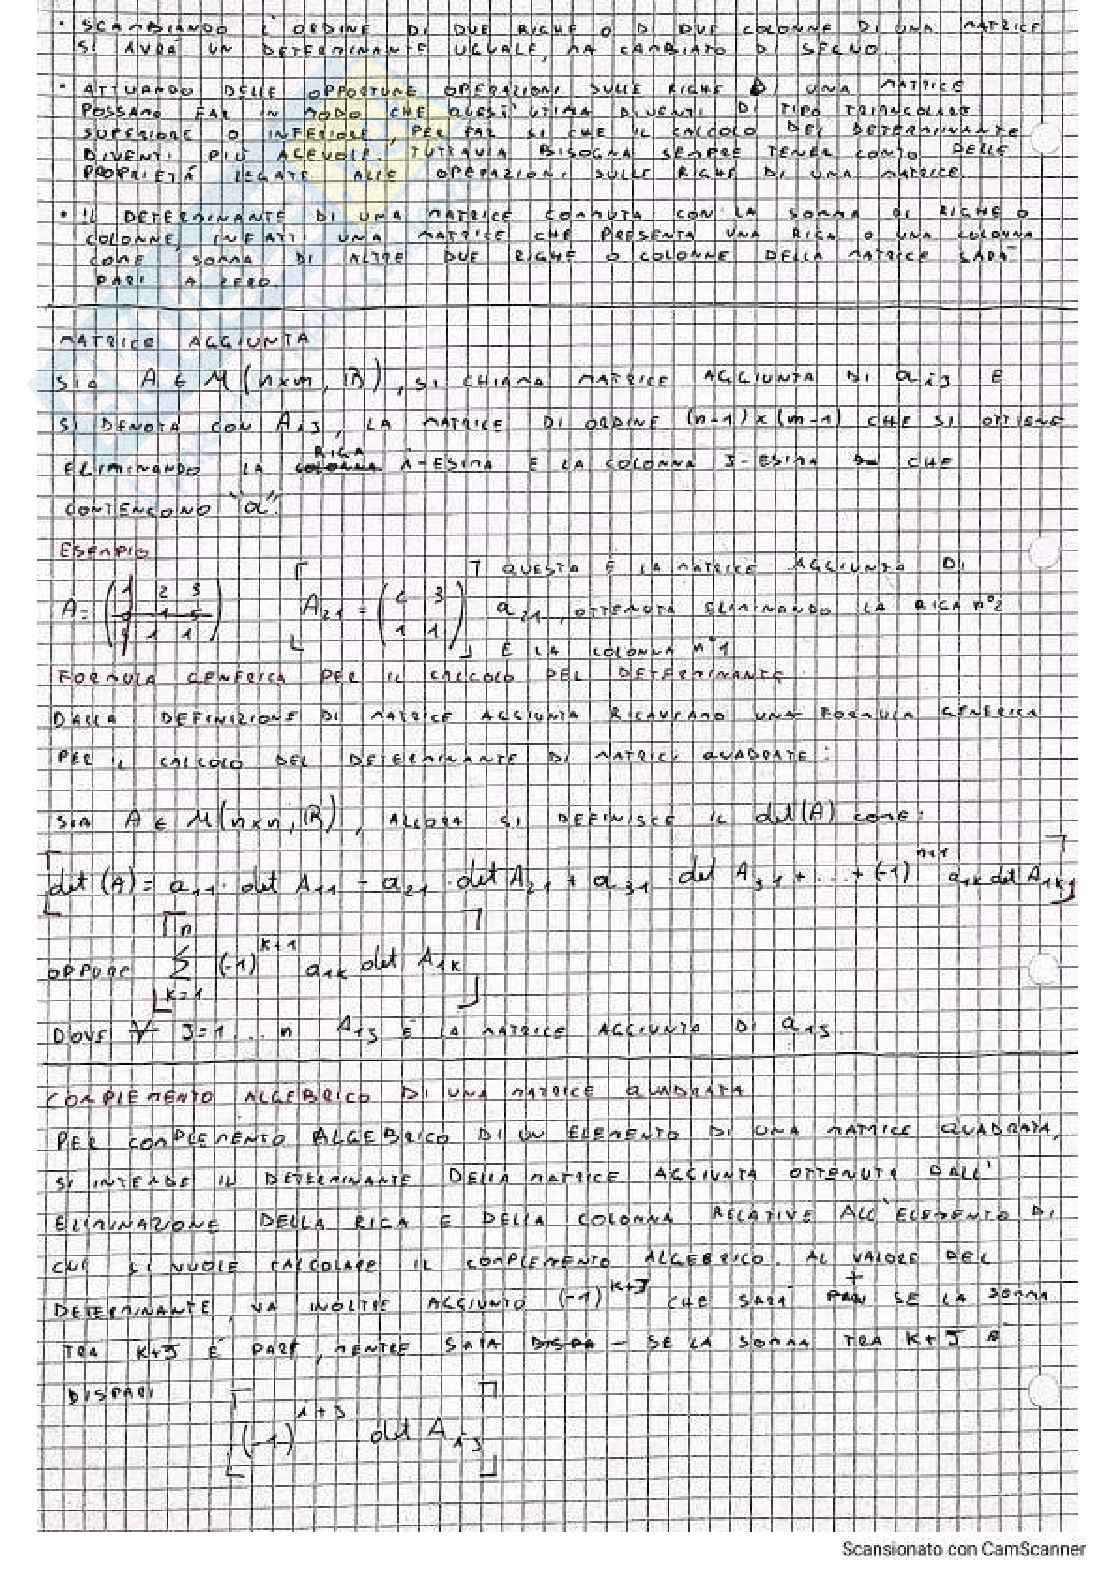 • SCAMBIANDO L'ORDINE DI DUE RIGHE O DI DUE COLONNE DI UNA MATRICE
SI AVRÀ UN DETERMINANTE UGUALE, MA CAMBIATO DI SEGNO.
• ATTUANDO DELLE OPPORTUNE OPERAZIONI SULLE RIGHE DI UNA MATRICE
POSSAMO FAR IN MODO CHE QUEST'ULTIMA DIVENTI DI TIPO TRIANGOLARE
SUPERIORE O INFERIORE, PER FAR SI CHE IL CALCOLO DEL DETERMINANTE
DIVENTI PIÙ AGEVOLE. TUTTAVIA BISOGNA SEMPRE TENER CONTO DELLE
PROPRIETÀ LEGATE ALLE OPERAZIONI SULLE RIGHE DI UNA MATRICE.
• IL DETERMINANTE DI UNA MATRICE COMMUTA CON LA SOMMA DI RIGHE O
COLONNE, INFATTI UNA MATRICE CHE PRESENTA UNA RIGA O UNA COLONNA
COME SOMMA DI ALTRE DUE RIGHE O COLONNE DELLA MATRICE SARÀ
PARI A ZERO.
MATRICE AGGIUNTA
SIA A ∈ M(n×m, ℝ), SI CHIAMA MATRICE AGGIUNTA DI aij E
SI DENOTA CON Aij, LA MATRICE DI ORDINE (n-1)×(m-1) CHE SI OTTIENE
ELIMINANDO LA RIGA i-ESIMA E LA COLONNA J-ESIMA CHE
CONTENGONO "a".
ESEMPIO
A = (1 2 3 / 0 1 5 / 0 1 1) [A21 = (2 3 / 1 1)] QUESTA È LA MATRICE AGGIUNTA DI
a21, OTTENUTA ELIMINANDO LA RIGA n°2
E LA COLONNA n°1
FORMULA GENERICA PER IL CALCOLO DEL DETERMINANTE
DALLA DEFINIZIONE DI MATRICE AGGIUNTA RICAVIAMO UNA FORMULA GENERICA
PER IL CALCOLO DEL DETERMINANTE DI MATRICI QUADRATE:
SIA A ∈ M(n×n, ℝ), ALLORA SI DEFINISCE IL det(A) COME:
det(A) = a11 · det A11 - a21 · det A21 + a31 · det A31 + ... + (-1)^n+1 a1k det A1k
OPPURE Σ k=1 n (-1)^k+1 a1k det A1k
DOVE ∀ J=1...n A1J È LA MATRICE AGGIUNTA DI a1J.
COMPLEMENTO ALGEBRICO DI UNA MATRICE QUADRATA
PER COMPLEMENTO ALGEBRICO DI UN ELEMENTO DI UNA MATRICE QUADRATA,
SI INTENDE IL DETERMINANTE DELLA MATRICE AGGIUNTA OTTENUTA DALL'
ELIMINAZIONE DELLA RIGA E DELLA COLONNA RELATIVE ALL'ELEMENTO DI
CUI SI VUOLE CALCOLARE IL COMPLEMENTO ALGEBRICO. AL VALORE DEL
DETERMINANTE, VA INOLTRE AGGIUNTO (-1)^K+J CHE SARÀ + SE LA SOMMA
TRA K+J È PARI, MENTRE SARÀ - SE LA SOMMA TRA K+J È
DISPARI
[(-1)^i+J det AiJ]
Scansionato con CamScanner